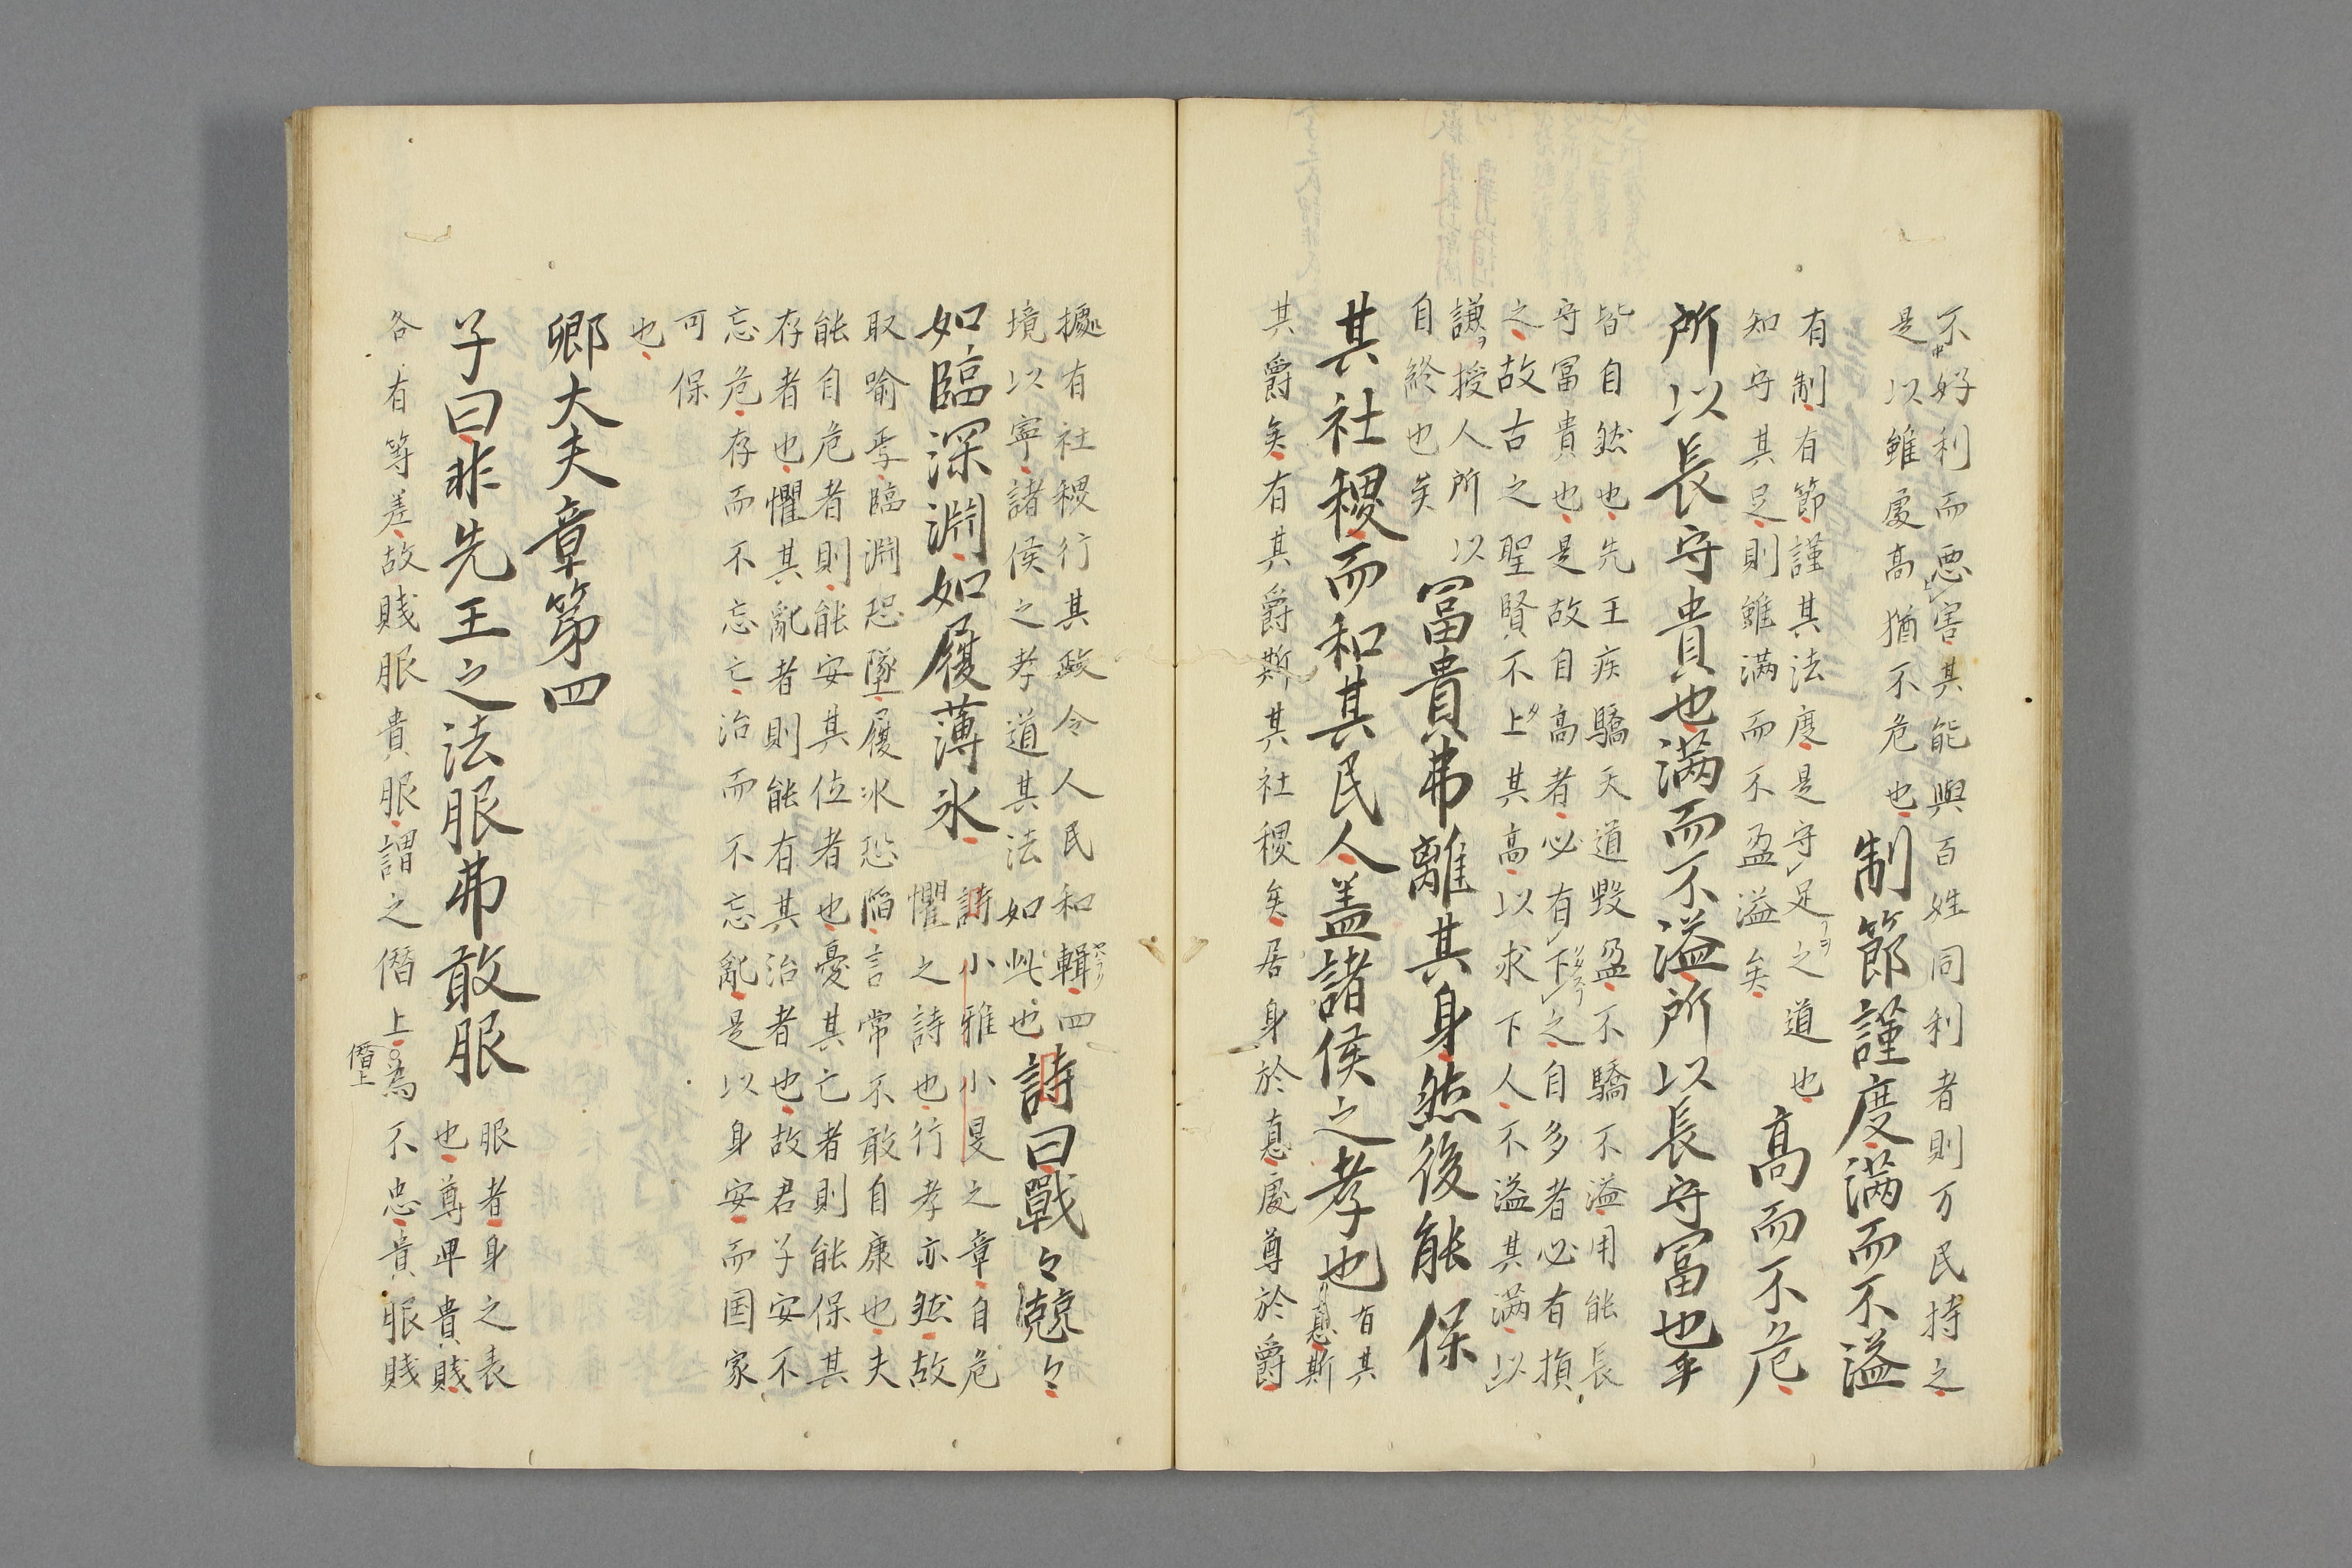 不好利而悪害其能與百姓同利者則万民持之
是以雖處高猶不危也
制節謹度満而不溢
有制有節謹其法度是守足之道也
知守其足則雖満而不盈溢矣
高而不危
所以長守貴也満而不溢所以長守富也
皆自然也先王疾驕天道毀盈不驕不溢用能長
守冨貴也是故自高者必有下之自多者必有損
之故古之聖賢不上其高以求下人不溢其満以
謙授人所以
自終也矣
冨貴弗離其身然後能保
其社稷而和其民人盖諸侯之孝也
有其
悳斯
其爵矣有其爵斯其社稷矣居身於悳處尊於爵
據有社稷行其政令人民和輯四
境以寧諸侯之孝道其法如此也
詩曰戰々兢々
如臨深淵如履薄氷
詩小雅小旻之章自危
懼之詩也行孝亦然故
取喻焉臨淵恐墜履氷恐陥言常不敢自康也夫
能自危者則能安其位者也憂其亡者則能保其
存者也懼其亂者則能有其治者也故君子安不
忘危存而不忘亡治而不忘亂是以身安而国家
可保
也
卿大夫章第四
子曰非先王之法服弗敢服
服者身之表
也尊卑貴賤
各有等差故賤服貴服謂之僭上為不忠貴服賤
僭上